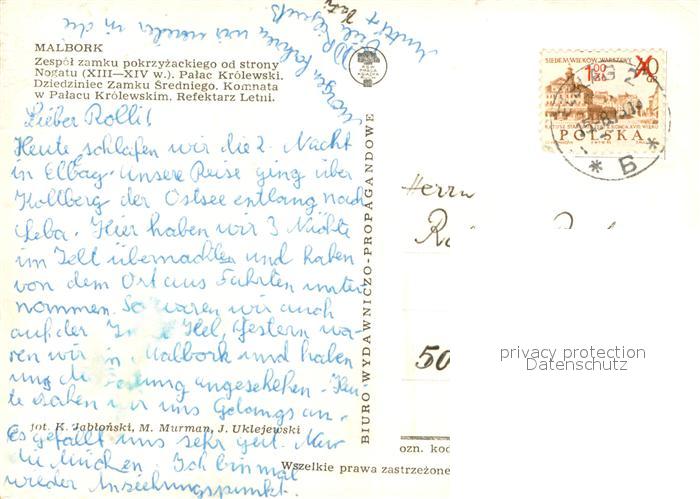 MALBORK
Zespół zamku pokrzyżackiego od strony
Nogatu (XIII—XIV w.). Pałac Królewski.
Dziedziniec Zamku Średniego. Komnata
w Pałacu Królewskim. Refektarz Letni.
Lieber Rolli!
Heute schlafen wir die 2. Nacht
in Elblag. Unsere Reise ging über
Kolberg der Ostsee entlang nach
Leba. Hier haben wir 3 Nächte
im Zelt übernachten und haben
von dem Ort aus Fahrten unter-
nommen. So waren wir auch
auf der Hel, gestern wa-
ren wir in Malbork und haben
uns die angesehen. Heu-
te sahen wir uns an.
Es gefällt uns sehr gut. Nur
die Mücken. Ich bin mal
wieder Anziehungspunkt.
Morgen fahren wir wieder in die
DDR
Viele Grüße
fot. K. Jabłoński, M. Murman, J. Uklejewski
BIURO WYDAWNICZO-PROPAGANDOWE
SIEDEM WIEKÓW WARSZAWY
1,00
ZŁ
40
GR
POLSKA
* Б *
Herrn
50
ozn. kod
Wszelkie prawa zastrzeżone
privacy protection
Datenschutz